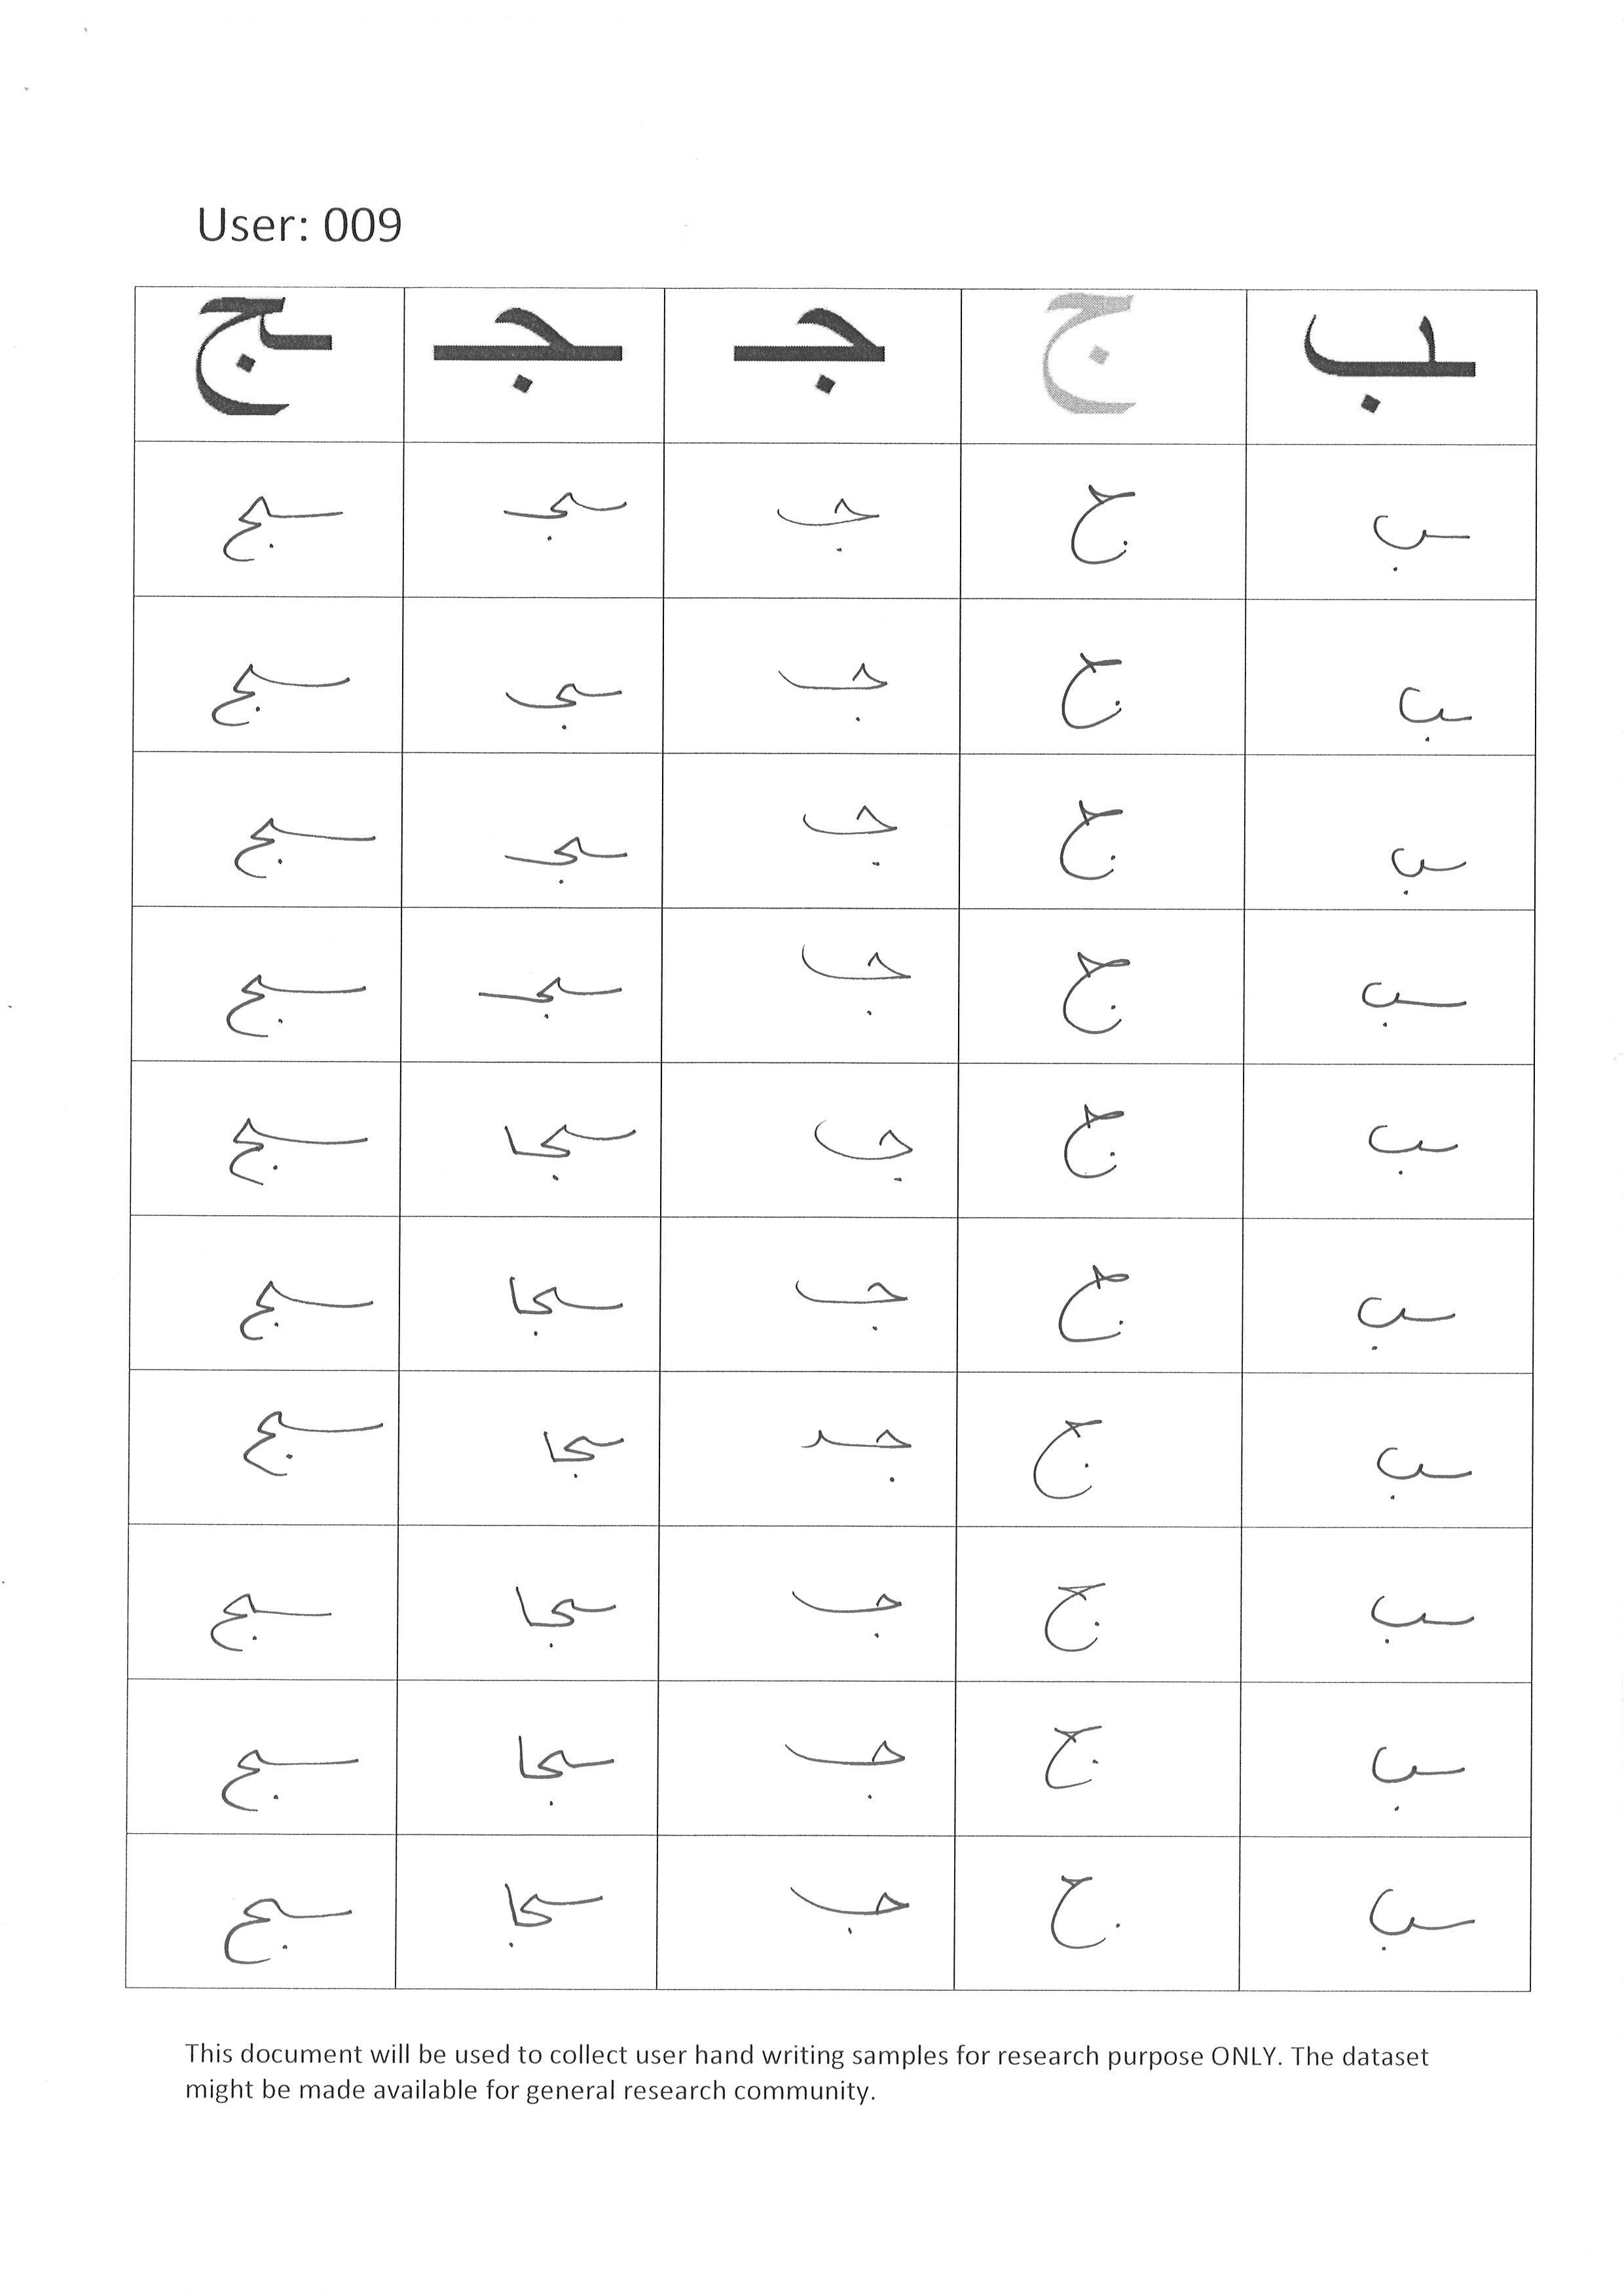 User: 009
ـب ج جـ ـجـ ـج
ـب ج جـ ـجـ ـج
ـب ج جـ ـجـ ـج
ـب ج جـ ـجـ ـج
ـب ج جـ ـجـ ـج
ـب ج جـ ـجا ـج
ـب ج جـ ـجا ـج
ـب ج جـ ـجا ـج
ـب ج جـ ـجا ـج
ـب ج جـ ـجا ـج
ـب ج جـ ـجا ـج
This document will be used to collect user hand writing samples for research purpose ONLY. The dataset
might be made available for general research community.